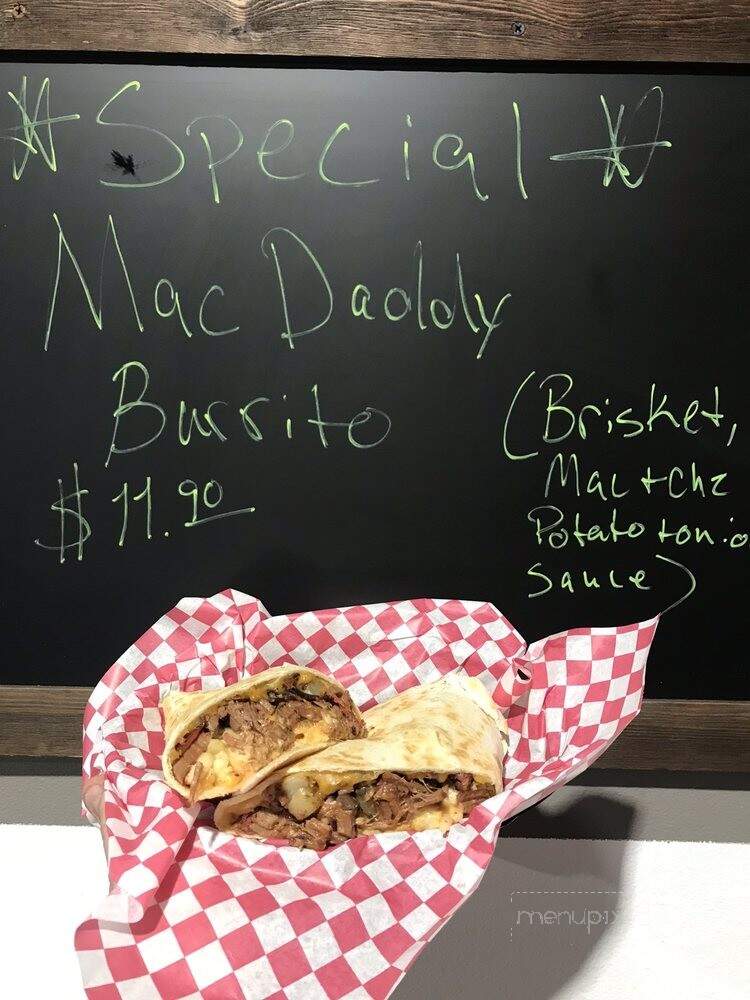 Special
Mac Daddy
Burrito
$11.90
(Brisket,
Mac + Chz
Potato + onio
sauce)
menupix